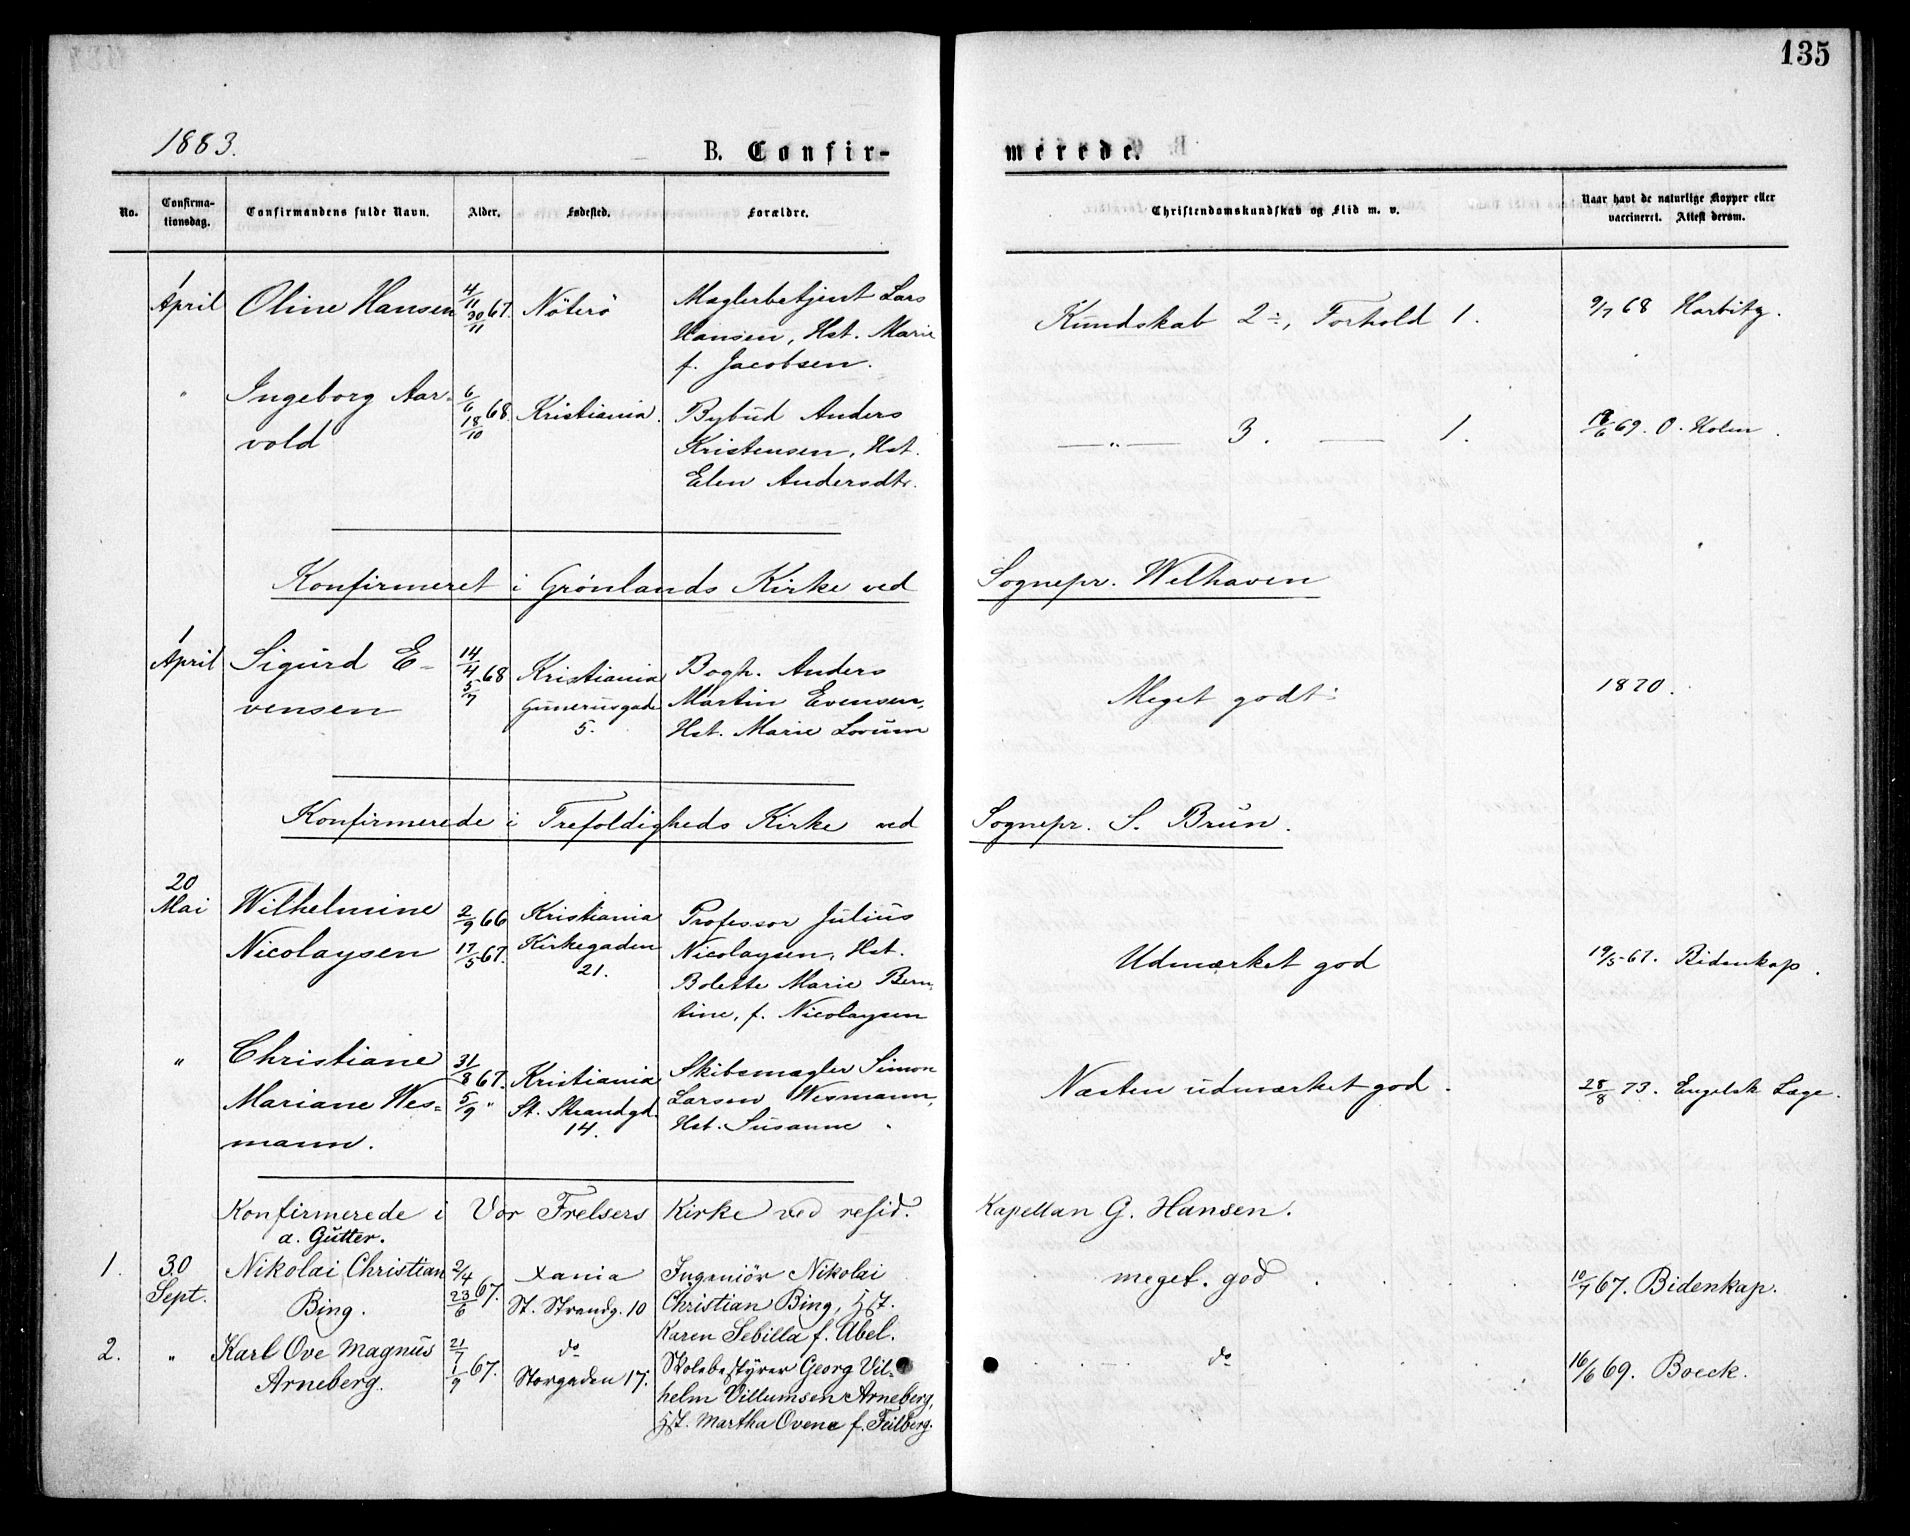 135
1883.
B. Confir-
merede.
No.
Confirma-
tionsdag.
Confirmandens fulde Navn.
Alder.
Fødested.
Forældre.
Christendomskundskab og Flid m. v.
Naar havt de naturlige Kopper eller
vaccineret. Attest derom.
1
April
Oline Hansen
4/11 67.
30/11
Nöterö
Maglerbetjent Lars
Hansen, Hst. Marie
f. Jacobsen.
Kundskab 2÷, Forhold 1.
9/7 68 Harbitz.
"
Ingeborg Aar-
vold
6/6 68.
18/10
Kristiania.
Bybud Anders
Kristensen, Hst.
Elen Andersdtr.
— " — 3. — 1.
/6 69. O. Holm.
Konfirmeret i Grønlands Kirke ved
Sognepr. Welhaven
1
April
Sigurd E-
vensen
14/4 68
5/7
Kristiania
Gunerusgade
5.
Bogh. Anders
Martin Evensen,
Hst. Marie Lorum
Meget godt÷
1870.
Konfirmerede i Trefoldigheds Kirke ved
Sognepr. S. Brun.
20
Mai
Wilhelmine
Nicolaysen
2/9 66
17/5 67.
Kristiania
Kirkegaden
21.
Professor Julius
Nicolaysen, Hst.
Bolette Marie Bern-
tine, f. Nicolaysen
Udmærket god
19/5-67. Bidenkap.
"
Christiane
Mariane Wes-
mann.
31/8 67.
5/9 "
Kristiania
St. Strandgd.
14.
Skibsmægler Simon
Larsen Wesmann,
Hst. Susanne "
Næsten udmærket god.
28/8 73. Engelsk Læge.
Konfirmerede i Vor Frelsers Kirke ved resid.
Kapellan G. Hansen.
a. Gutter.
1.
30
Sept.
Nikolai Christian
Bing.
2/4 67.
23/6
Xania
St. Strandg. 10
Ingeniör Nikolai
Christian Bing, Hst.
Karen Sebilla f. Abel.
meget god
10/7 67. Bidenkap.
2.
"
Karl Ove Magnus
Arneberg.
21/7 67.
1/9
do
Storgaden 17.
Skolebestyrer Georg Vil-
helm Villumsen Arneberg,
Hst. Martha Ovena f. Feilberg.
do
16/6 69. Boeck.